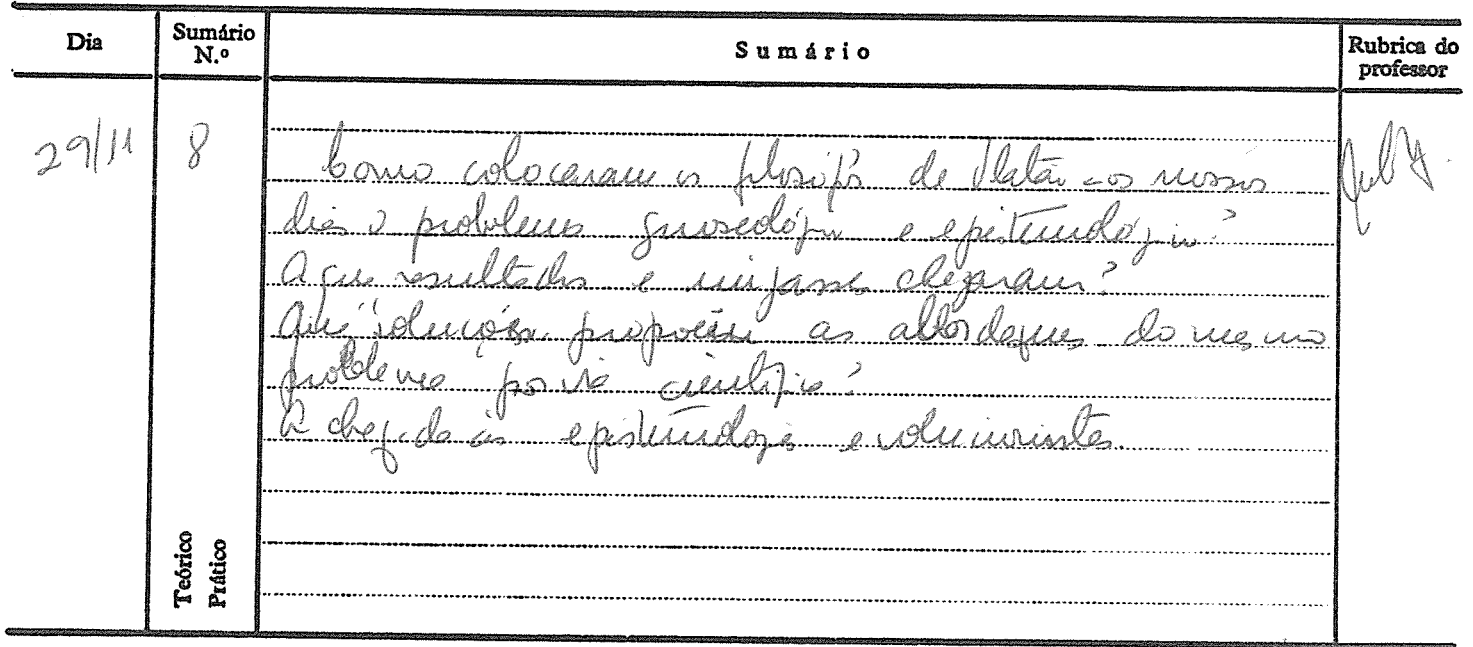 Dia
Sumário N.º
Sumário
Rubrica do professor
29/11
8
Como colocaram os filósofos de Platão aos nossos
dias o problema gnoseológico e epistemológico?
A que resultados e impasses chegaram?
Que "soluções" propõem as abordagens do mesmo
problema por via científica?
A chegada às epistemologias evolucionistas.
Teórico
Prático